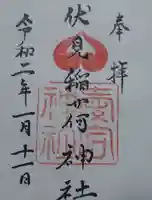 奉拝
伏見稲荷神社
令和二年一月十一日